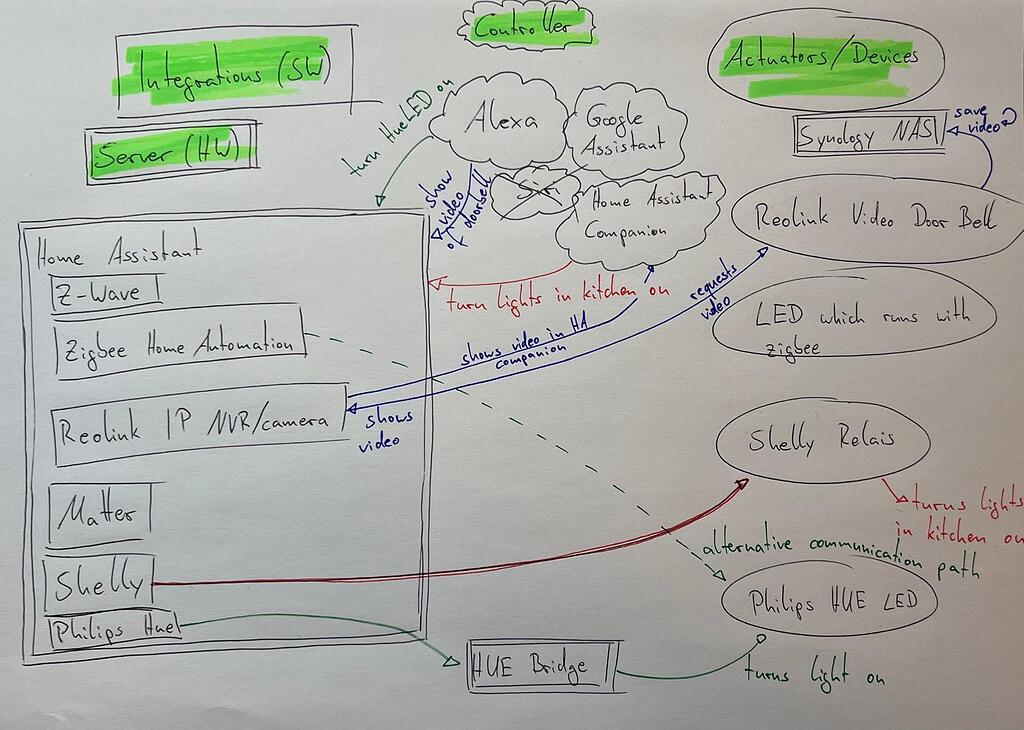 Integrations (SW)
Server (HW)
Controller
Actuators/Devices
turn HueLED on
Alexa
Google
Assistant
Siri
Home Assistant
Companion
Synology NAS
save
video
Reolink Video Door Bell
show
video
of doorbell
turn lights in kitchen on
requests
video
LED which runs with
zigbee
Home Assistant
Z-Wave
Zigbee Home Automation
shows video in HA
companion
Reolink IP NVR/camera
shows
video
Shelly Relais
turns lights
in kitchen on
Matter
Shelly
Philips Hue
alternative communication path
Philips HUE LED
HUE Bridge
turns light on